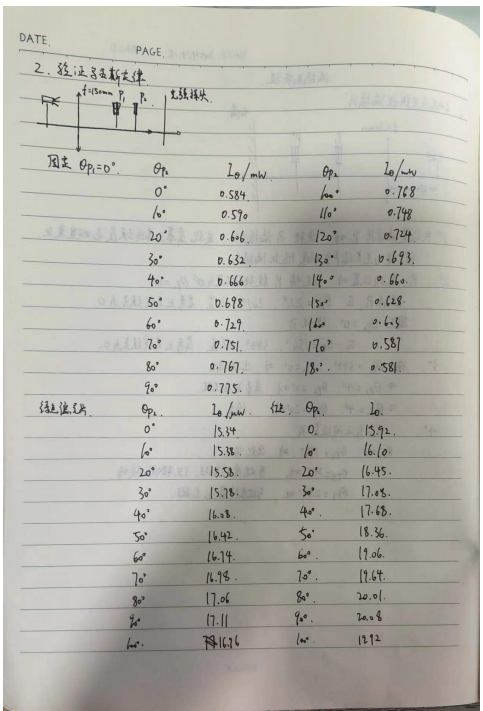 DATE.
PAGE.
2. 验证马吕斯定律
f=150mm P₁ P₂ 光强探头.
固定 θp₁=0°. θp₂ Iθ/mW. θp₂ Iθ/mW
0° 0.584. 100° 0.768
10° 0.590 110° 0.748
20° 0.606. 120° 0.724
30° 0.632 130° 0.693.
40° 0.666 140° 0.660.
50° 0.698 150° 0.628.
60° 0.729. 160° 0.603
70° 0.751. 170° 0.587
80° 0.767. 180°. 0.581
90° 0.775.
θp₂. Iθ/mW. θp₂. Iθ.
0° 15.34 0. 15.92.
10° 15.38 10° 16.10.
20° 15.58 20° 16.45.
30° 15.78. 30° 17.08.
40° 16.08. 40° 17.68.
50° 16.42. 50° 18.36.
60° 16.74. 60°. 19.06.
70° 16.98. 70°. 19.64.
80° 17.06 80°. 20.01.
90° 17.11 90°. 20.08
100°. 16.76 100° 19.92